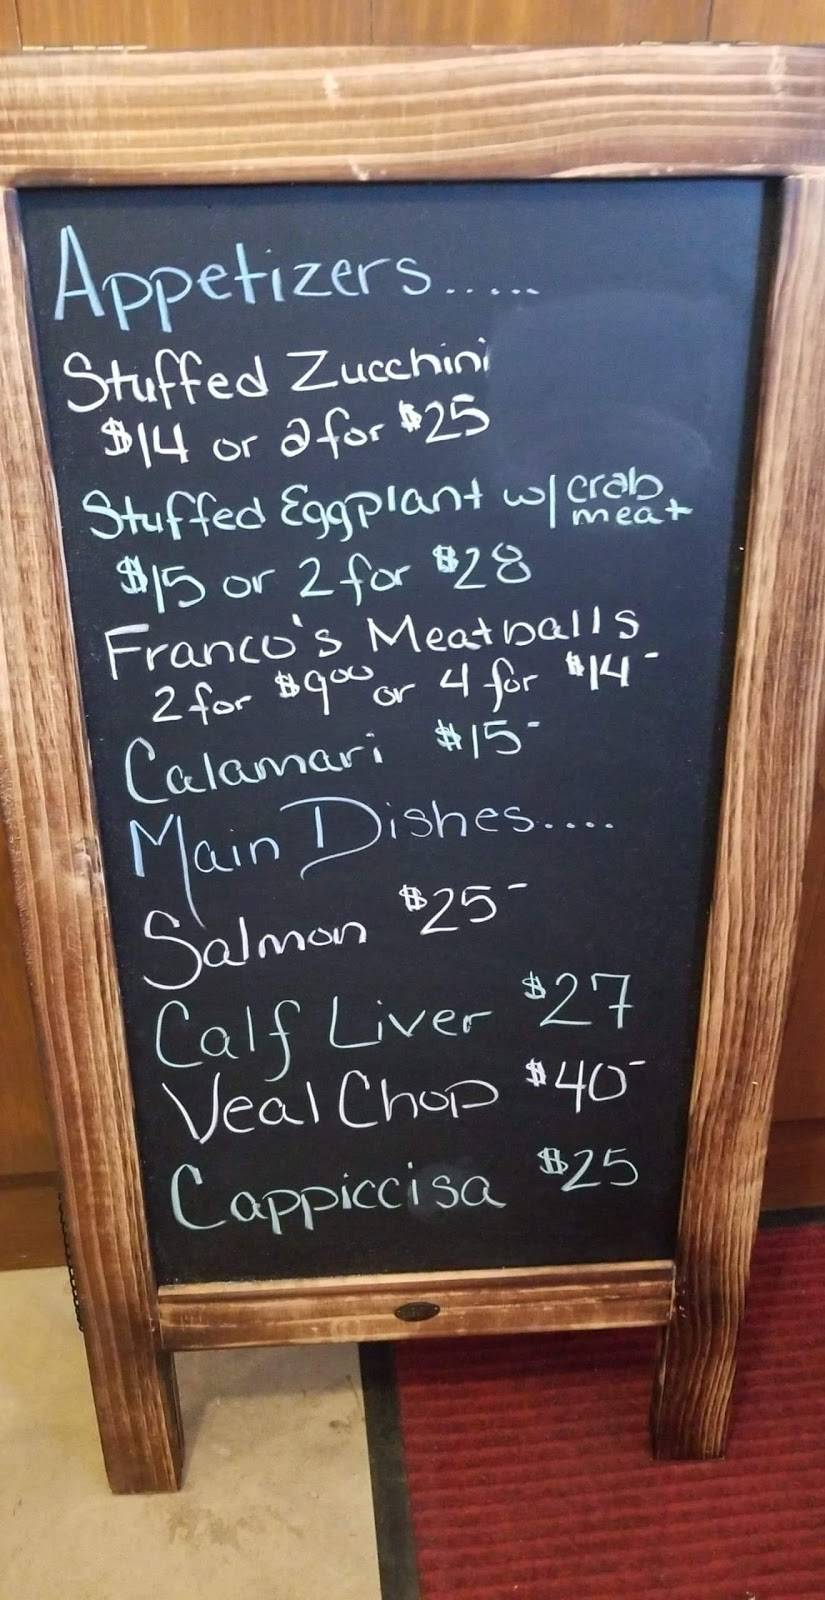 Appetizers.....
Stuffed Zucchini
$14 or 2 for $25
Stuffed Eggplant w/ crab meat
$15 or 2 for $28
Franco's Meatballs
2 for $9.00 or 4 for $14-
Calamari $15-
Main Dishes....
Salmon $25-
Calf Liver $27
Veal Chop $40-
Cappiccisa $25